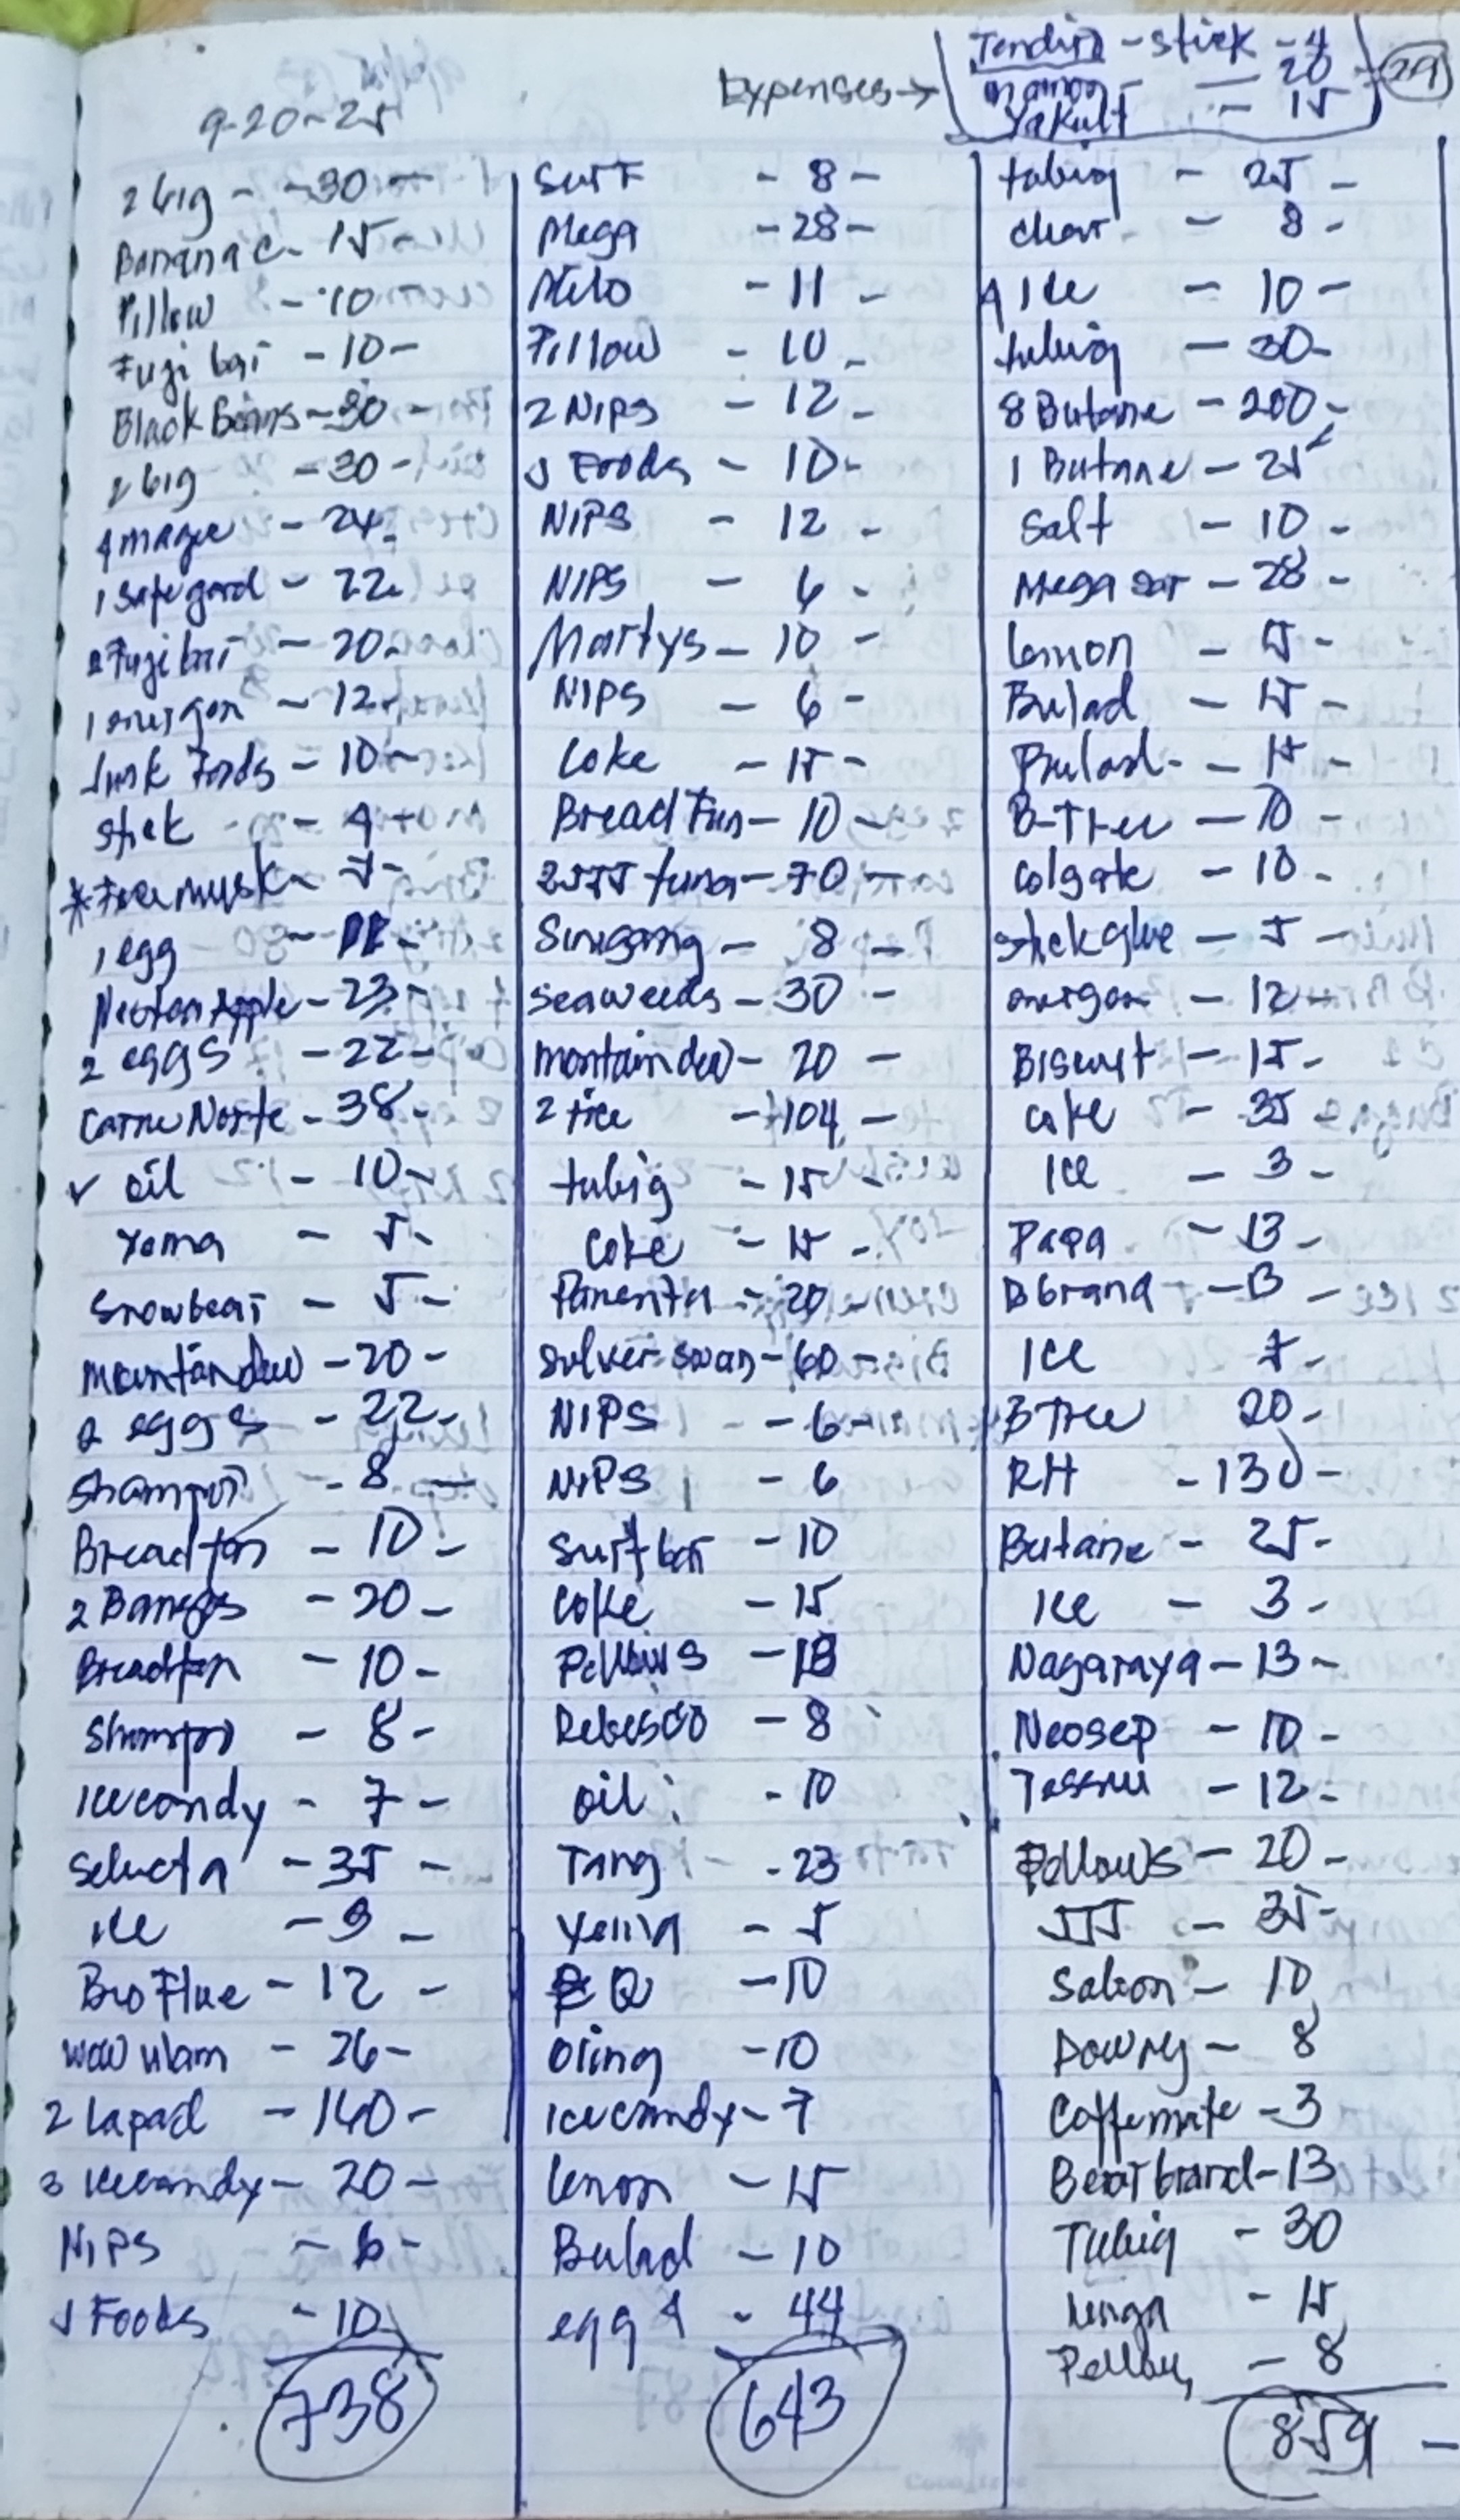 9-20-25
Expenses →
Tendira - stick - 4
mamon - 20
Yakult - 15
29
2 big - 30 -
Banana c - 15 -
Pillow - 10
Fugi bar - 10 -
Black Beans - 30 -
2 big - 30 -
4 magic - 24 -
1 Safegard - 22
2 Fugi bar - 20 -
1 energen - 12 -
Junk Foods - 10 -
Stick - 4 -
1 egg - 11 -
Nectar Apple - 23 -
2 eggs - 22 -
Carne Norte - 38 -
✓ oil - 10 -
Yema - 5 -
Snowbear - 5 -
Mountandew - 20 -
2 eggs - 22 -
Shampoi - 8 -
Breadfan - 10 -
2 Bangos - 20 -
Breadfan - 10 -
Shampo - 8 -
Icecandy - 7 -
Selecta - 35 -
Ice - 9 -
Bio Flue - 12 -
Wow ulam - 26 -
2 Lapad - 140 -
3 Icecandy - 20 -
NIPS - 6 -
J Foods - 10
738
Surf - 8 -
Mega - 28 -
Milo - 11 -
Pillow - 10 -
2 NIPS - 12 -
J Foods - 10 -
NIPS - 12 -
NIPS - 6 -
Martys - 10 -
NIPS - 6 -
Coke - 15 -
Bread Fun - 10 -
2 555 tuna - 70 -
Sinigang - 8 -
Seaweeds - 30 -
Montaindew - 20 -
2 rice - 104 -
tubig - 15 -
Coke - 15 -
Pamenta - 20 -
Silver swan - 60 -
NIPS - 6 -
NIPS - 6
Surf bar - 10
Coke - 15
Pellows - 18
Rebisco - 8
Oil - 10
Tang - 23
Yema - 5
Q - 10
Oring - 10
Icecandy - 7
Lemon - 15
Bulad - 10
egg 4 - 44
643
tubig - 25 -
chart - 8 -
4 Ice - 10 -
tubig - 30 -
8 Butane - 200 -
1 Butane - 25
Salt - 10 -
Mega sar - 28 -
Lemon - 15 -
Bulad - 15 -
Bulad - 15 -
B-Tree - 10 -
Colgate - 10 -
stick glue - 5 -
energen - 12 -
Biscuit - 15 -
Coke - 35 -
Ice - 3 -
Papa - 13 -
B brand - 13 -
Ice 7 -
B Tree 20 -
RH - 130 -
Butane - 25 -
Ice - 3 -
Nagaraya - 13 -
Neosep - 10 -
Tessue - 12 -
Pellows - 20 -
555 - 35 -
Sabon - 10
Downy - 8
Coffemate - 3
Bearbrand - 13
Tubig - 30
- 15
Pellow, - 8
859 -